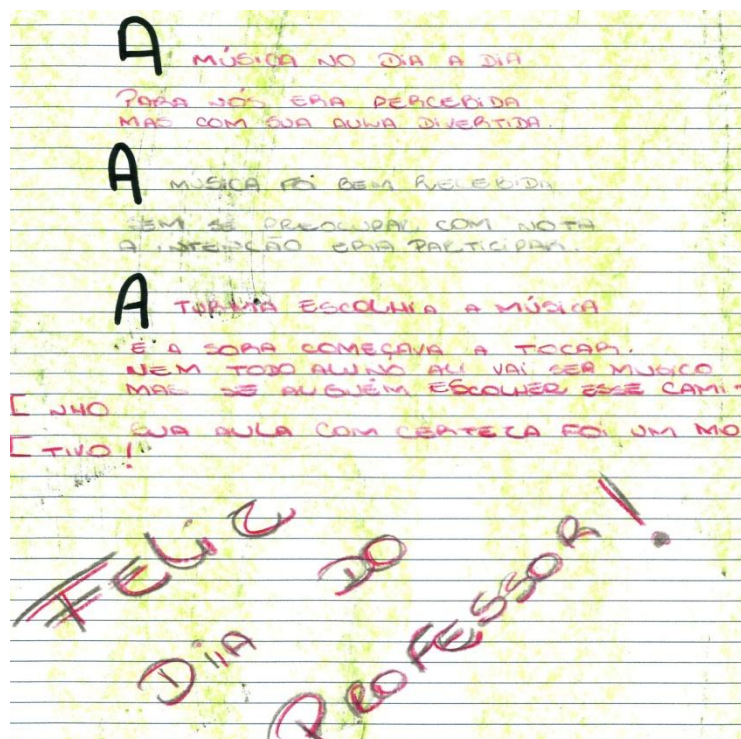 A MÚSICA NO DIA A DIA
PARA NÓS ERA PERCEBIDA
MAS COM SUA AULA DIVERTIDA.
A MÚSICA FOI BEM RECEBIDA
SEM SE PREOCUPAR COM NOTA
A INTENÇÃO ERA PARTICIPAR.
A TURMA ESCOLHIA A MÚSICA
E A SORA COMEÇAVA A TOCAR.
NEM TODO ALUNO ALI VAI SER MUSICO
MAS SE ALGUÉM ESCOLHER ESSE CAMI-
NHO
SUA AULA COM CERTEZA FOI UM MO
TIVO!
FELIZ
DIA DO
PROFESSOR!